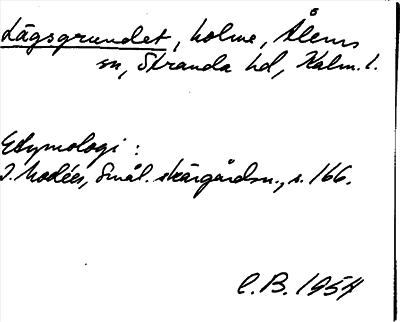 Lågsgrundet, holme, Ålems
sn, Stranda hd, Kalm. l.
Etymologi:
I. Modéer, Smål. skärgårdsn., s. 166.
C.B. 1954